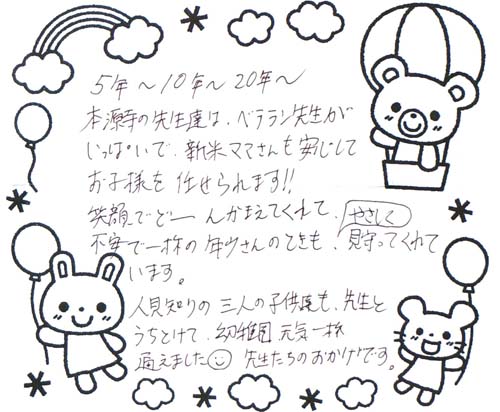 5年〜10年〜20年〜
本源寺の先生達は、ベテラン先生が
いっぱいで、新米ママさんも安心して
お子様を任せられます!!
笑顔でどーんかまえてくれて、やさしく
不安で一杯の年少さんのときも、見守ってくれて
います。
人見知りの三人の子供達も、先生と
うちとけて、幼稚園元気一杯
通えました 先生たちのおかげです。